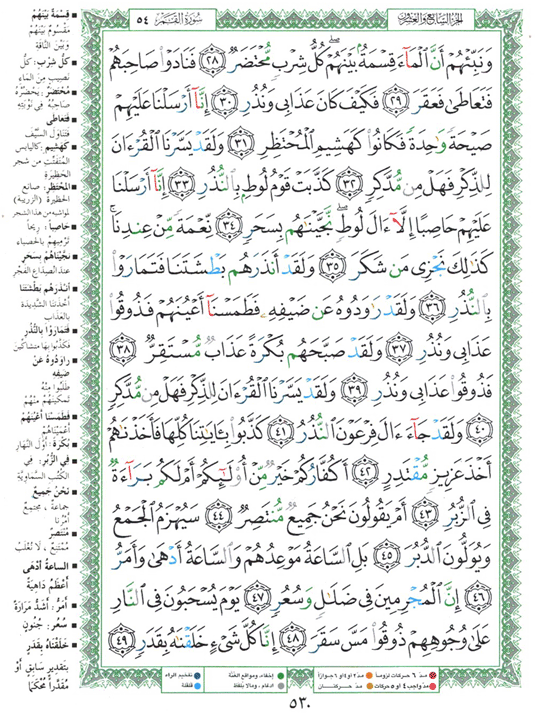 الجزء السابع والعشرون
سُورَةُ القَمَر ٥٤
وَنَبِّئْهُمْ أَنَّ ٱلْمَآءَ قِسْمَةٌۢ بَيْنَهُمْ ۖ كُلُّ شِرْبٍ مُّحْتَضَرٌ ﴿٢٨﴾ فَنَادَوْا۟ صَاحِبَهُمْ
فَتَعَاطَىٰ فَعَقَرَ ﴿٢٩﴾ فَكَيْفَ كَانَ عَذَابِى وَنُذُرِ ﴿٣٠﴾ إِنَّآ أَرْسَلْنَا عَلَيْهِمْ
صَيْحَةً وَٰحِدَةً فَكَانُوا۟ كَهَشِيمِ ٱلْمُحْتَظِرِ ﴿٣١﴾ وَلَقَدْ يَسَّرْنَا ٱلْقُرْءَانَ
لِلذِّكْرِ فَهَلْ مِن مُّدَّكِرٍ ﴿٣٢﴾ كَذَّبَتْ قَوْمُ لُوطٍۭ بِٱلنُّذُرِ ﴿٣٣﴾ إِنَّآ أَرْسَلْنَا
عَلَيْهِمْ حَاصِبًا إِلَّآ ءَالَ لُوطٍ ۖ نَّجَّيْنَٰهُم بِسَحَرٍ ﴿٣٤﴾ نِّعْمَةً مِّنْ عِندِنَا ۚ
كَذَٰلِكَ نَجْزِى مَن شَكَرَ ﴿٣٥﴾ وَلَقَدْ أَنذَرَهُم بَطْشَتَنَا فَتَمَارَوْا۟
بِٱلنُّذُرِ ﴿٣٦﴾ وَلَقَدْ رَٰوَدُوهُ عَن ضَيْفِهِۦ فَطَمَسْنَآ أَعْيُنَهُمْ فَذُوقُوا۟
عَذَابِى وَنُذُرِ ﴿٣٧﴾ وَلَقَدْ صَبَّحَهُم بُكْرَةً عَذَابٌ مُّسْتَقِرٌّ ﴿٣٨﴾
فَذُوقُوا۟ عَذَابِى وَنُذُرِ ﴿٣٩﴾ وَلَقَدْ يَسَّرْنَا ٱلْقُرْءَانَ لِلذِّكْرِ فَهَلْ مِن مُّدَّكِرٍ
﴿٤٠﴾ وَلَقَدْ جَآءَ ءَالَ فِرْعَوْنَ ٱلنُّذُرُ ﴿٤١﴾ كَذَّبُوا۟ بِـَٔايَٰتِنَا كُلِّهَا فَأَخَذْنَٰهُمْ
أَخْذَ عَزِيزٍ مُّقْتَدِرٍ ﴿٤٢﴾ أَكُفَّارُكُمْ خَيْرٌ مِّنْ أُو۟لَٰٓئِكُمْ أَمْ لَكُم بَرَآءَةٌ
فِى ٱلزُّبُرِ ﴿٤٣﴾ أَمْ يَقُولُونَ نَحْنُ جَمِيعٌ مُّنتَصِرٌ ﴿٤٤﴾ سَيُهْزَمُ ٱلْجَمْعُ
وَيُوَلُّونَ ٱلدُّبُرَ ﴿٤٥﴾ بَلِ ٱلسَّاعَةُ مَوْعِدُهُمْ وَٱلسَّاعَةُ أَدْهَىٰ وَأَمَرُّ
﴿٤٦﴾ إِنَّ ٱلْمُجْرِمِينَ فِى ضَلَٰلٍ وَسُعُرٍ ﴿٤٧﴾ يَوْمَ يُسْحَبُونَ فِى ٱلنَّارِ
عَلَىٰ وُجُوهِهِمْ ذُوقُوا۟ مَسَّ سَقَرَ ﴿٤٨﴾ إِنَّا كُلَّ شَىْءٍ خَلَقْنَٰهُ بِقَدَرٍ ﴿٤٩﴾
قِسْمَةٌ بَيْنَهُم
مَقْسُومٌ بَيْنَهُمْ
وَبَيْنَ النَّاقَةِ
كُلُّ شِرْبٍ: كُلُّ
نَصِيبٍ مِنَ المَاءِ
مُحْتَضَرٌ: يَحْضُرُهُ
صَاحِبُهُ فِي نَوْبَتِهِ
فَتَعَاطَى
فَتَنَاوَلَ السَّيْفَ
كَهَشِيمِ: كَاليَابِسِ
المُتَفَتِّتِ مِنْ شَجَرِ
الحَظِيرَةِ
المُحْتَظِرِ: صَانِعِ
الحَظِيرَةِ (الزَّرِيبَةِ)
لِمَوَاشِيهِ مِنْ هَذَا الشَّجَرِ
حَاصِبًا: رِيحًا
تَرْمِيهِمْ بِالحَصْبَاءِ
نَجَّيْنَاهُمْ بِسَحَرٍ
عِنْدَ انْصِدَاعِ الفَجْرِ
أَنْذَرَهُمْ بَطْشَتَنَا
أَخْذَتَنَا الشَّدِيدَةَ
بِالعَذَابِ
فَتَمَارَوْا بِالنُّذُرِ
فَكَذَّبُوا بِهَا مُتَشَاكِّينَ
رَاوَدُوهُ عَنْ
ضَيْفِهِ
طَلَبُوا مِنْهُ
تَمْكِينَهُمْ مِنْهُمْ
فَطَمَسْنَا أَعْيُنَهُمْ
أَعْمَيْنَاهُمْ
بُكْرَةً: أَوَّلَ النَّهَارِ
فِي الزُّبُرِ: فِي
الكُتُبِ السَّمَاوِيَّةِ
نَحْنُ جَمِيعٌ
جَمَاعَةٌ، مُجْتَمِعٌ
أَمْرُنَا
مُنْتَصِرٌ
مُمْتَنِعٌ، لَا نُغْلَبُ
السَّاعَةُ أَدْهَى
أَعْظَمُ دَاهِيَةً
أَمَرُّ: أَشَدُّ مَرَارَةً
سُعُرٍ: جُنُونٍ
خَلَقْنَاهُ بِقَدَرٍ
بِتَقْدِيرٍ سَابِقٍ أَوْ
مُقَدَّرًا مُحْكَمًا
مدّ ٦ حركات لزوماً
مدّ ٢ أو ٤ أو ٦ جوازاً
إخفاء، ومواقع الغنّة
تفخيم الراء
مدّ واجب ٤ أو ٥ حركات
مدّ حركتان
ادغام، وما لا يلفظ
قلقلة
٥٣٠